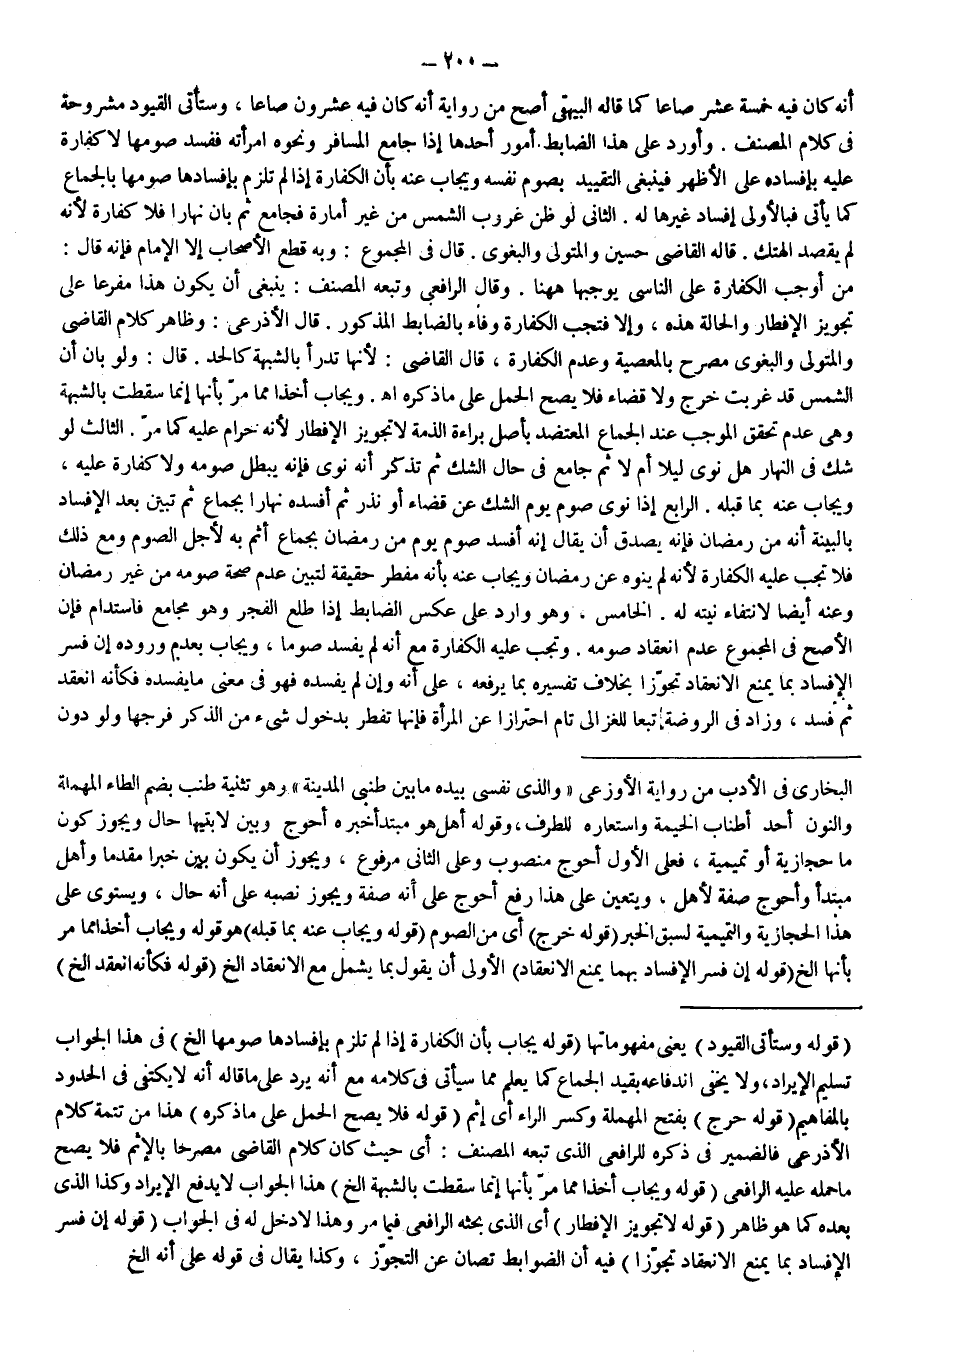 — ٢٠٠ —
أنه كان فيه خمسة عشر صاعا كما قاله البيهقى أصح من رواية أنه كان فيه عشرون صاعا ، وستأتى القيود مشروحة
فى كلام المصنف . وأورد على هذا الضابط أمور أحدها إذا جامع المسافر ونحوه امرأته ففسد صومها لا كفارة
عليه بإفساده على الأظهر فينبغى التقييد بصوم نفسه ويجاب عنه بأن الكفارة إذا لم تلزم بإفسادها صومها بالجماع
كما يأتى فبالأولى إفساد غيرها له . الثانى لو ظن غروب الشمس من غير أمارة فجامع ثم بان نهارا فلا كفارة لأنه
لم يقصد الهتك . قاله القاضى حسين والمتولى والبغوى . قال فى المجموع : وبه قطع الأصحاب إلا الإمام فإنه قال :
من أوجب الكفارة على الناسى يوجبها ههنا . وقال الرافعى وتبعه المصنف : ينبغى أن يكون هذا مفرعا على
تجويز الإفطار والحالة هذه ، وإلا فتجب الكفارة وفاء بالضابط المذكور . قال الأذرعى : وظاهر كلام القاضى
والمتولى والبغوى مصرح بالمعصية وعدم الكفارة ، قال القاضى : لأنها تدرأ بالشبهة كالحد . قال : ولو بان أن
الشمس قد غربت خرج ولا قضاء فلا يصح الحمل على ماذكره اه . ويجاب أخذا مما مرّ بأنها إنما سقطت بالشبهة
وهى عدم تحقق الموجب عند الجماع المعتضد بأصل براءة الذمة لا تجويز الإفطار لأنه حرام عليه كما مرّ . الثالث لو
شك فى النهار هل نوى ليلا أم لا ثم جامع فى حال الشك ثم تذكر أنه نوى فإنه يبطل صومه ولا كفارة عليه ،
ويجاب عنه بما قبله . الرابع إذا نوى صوم يوم الشك عن قضاء أو نذر ثم أفسده نهارا بجماع ثم تبين بعد الإفساد
بالبينة أنه من رمضان فإنه يصدق أن يقال إنه أفسد صوم يوم من رمضان بجماع أثم به لأجل الصوم ومع ذلك
فلا تجب عليه الكفارة لأنه لم ينوه عن رمضان ويجاب عنه بأنه مفطر حقيقة لتبين عدم صحة صومه من غير رمضان
وعنه أيضا لانتفاء نيته له . الخامس ، وهو وارد على عكس الضابط إذا طلع الفجر وهو مجامع فاستدام فإن
الأصح فى المجموع عدم انعقاد صومه . وتجب عليه الكفارة مع أنه لم يفسد صوما ، ويجاب بعدم وروده إن فسر
الإفساد بما يمنع الانعقاد تجوّزا بخلاف تفسيره بما يرفعه ، على أنه وإن لم يفسده فهو فى معنى مايفسده فكأنه انعقد
ثم فسد ، وزاد فى الروضة تبعا للغزالى تام احترازا عن المرأة فإنها تفطر بدخول شىء من الذكر فرجها ولو دون
البخارى فى الأدب من رواية الأوزعى « والذى نفسى بيده مابين طنبى المدينة » وهو تثنية طنب بضم الطاء المهملة
والنون أحد أطناب الخيمة واستعاره للطرف ، وقوله أهل هو مبتدأ خبره أحوج وبين لابتيها حال ويجوز كون
ما حجازية أو تميمية ، فعلى الأول أحوج منصوب وعلى الثانى مرفوع ، ويجوز أن يكون بين خبرا مقدما وأهل
مبتدأ وأحوج صفة لأهل ، ويتعين على هذا رفع أحوج على أنه صفة ويجوز نصبه على أنه حال ، ويستوى على
هذا الحجازية والتميمية لسبق الخبر (قوله خرج) أى من الصوم (قوله ويجاب عنه بما قبله) هو قوله ويجاب أخذا مما مر
بأنها الخ (قوله إن فسر الإفساد بهما يمنع الانعقاد) الأولى أن يقول بما يشمل مع الانعقاد الخ (قوله فكأنه انعقد الخ )
( قوله وستأتى القيود ) يعنى مفهوماتها (قوله يجاب بأن الكفارة إذا لم تلزم بإفسادها صومها الخ ) فى هذا الجواب
تسليم الإيراد، ولا يخفى اندفاعه بقيد الجماع كما يعلم مما سيأتى فى كلامه مع أنه يرد على ماقاله أنه لايكتفى فى الحدود
بالمفاهيم ( قوله حرج ) بفتح المهملة وكسر الراء أى إثم ( قوله فلا يصح الحمل على ماذكره ) هذا من تتمة كلام
الأذرعى فالضمير فى ذكره للرافعى الذى تبعه المصنف : أى حيث كان كلام القاضى مصرحا بالإثم فلا يصح
ماحمله عليه الرافعى ( قوله ويجاب أخذا مما مرّ بأنها إنما سقطت بالشبهة الخ ) هذا الجواب لايدفع الإيراد وكذا الذى
بعده كما هو ظاهر ( قوله لا تجويز الإفطار ) أى الذى بحثه الرافعى فيما مر وهذا لادخل له فى الجواب ( قوله إن فسر
الإفساد بما يمنع الانعقاد تجوّزا ) فيه أن الضوابط تصان عن التجوّز ، وكذا يقال فى قوله على أنه الخ